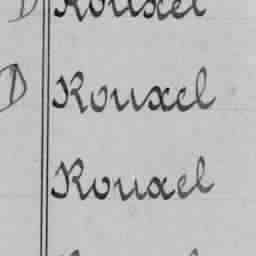 D Rouxel
D Rouxel
Rouxel